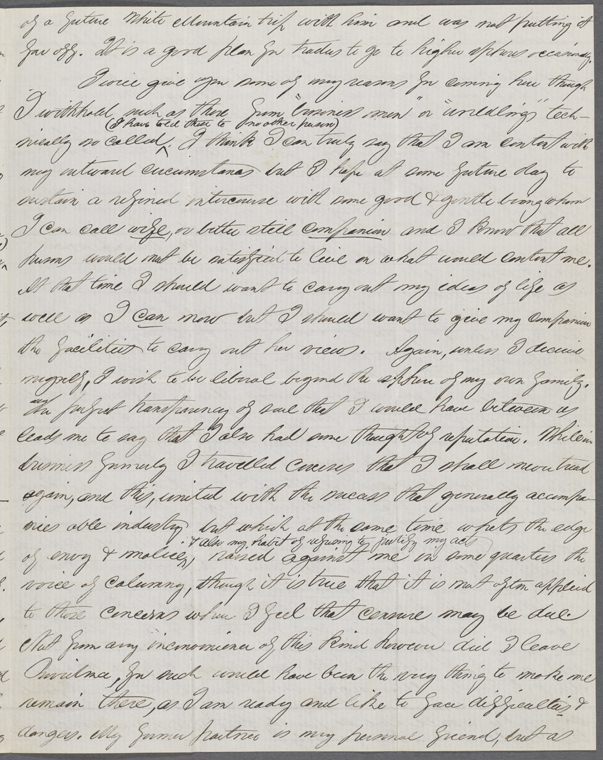 of a future White Mountain trip with him and was not putting it
far off. It is a good plan for traders to go to higher spheres occasionally.
I will give you some of my reasons for coming here though
I withhold such as these from "business men" or "worldlings" tech-
(I have told these to no other person)
nically so called. I think I can truly say that I am content with
my outward circumstances but I hope at some future day to
sustain a refined intercourse with some good & gentle being whom
I can call wife, or better still companion and I know that all
persons would not be satisfied to live on what would content me.
At that time I should want to carry out my ideas of life as
well as I can now but I should want to give my companion
the facilities to carry out her views. Again, unless I deceive
myself, I wish to be liberal beyond the sphere of my own family.
The perfect transparency of soul that I would have between us
leads me to say that I also had some thought of reputation. While in
business formerly I travelled courses that I shall never tread
again, and this, united with the success that generally accompa-
nies able industry but which at the same time whets the edge
& also my habit of refusing to justify my acts
of envy & malice, raised against me in some quarters the
voice of calumny, though it is true that it is not often applied
to those concerns where I feel that censure may be due
Not from any inconvenience of this kind however did I leave
for such would have been the very thing to make me
remain there, as I am ready and like to face difficulties &
dangers. My former partner is my personal friend, but as